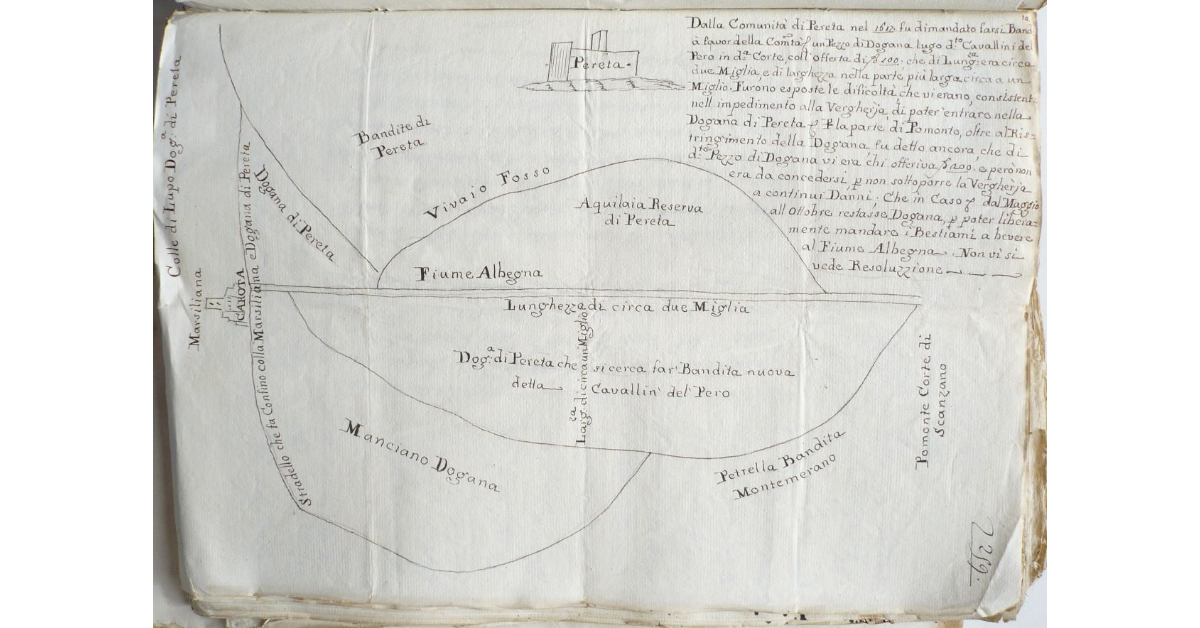 Dalla Comunità di Pereta nel 1612 fu dimandato farsi Band.ta
à favor della Com.tà un Pezzo di Dogana lugo d.to Cavallini del
Pero in d.a Corte, coll'offerta di 100. che di Lung.za era circa
due Miglia, e di larghezza nella parte più larga circa a un
Miglio. Furono esposte le dificoltà che vi erano, consistenti
nell'impedimento alla Vergherja di poter'entrare nella
Dogana di Pereta p la parte di Pomonto, oltre al Ris=
tringimento della Dogana fu detto ancora, che di
d.to Pezzo di Dogana vi era chi offeriva 200. e però non
era da concedersi, p non sottoporre la Vergherja
a continui Danni. Che in Caso dal Maggio
all'Ottobre restasse Dogana, p poter libera=
mente mandare i Bestiami a bevere
al Fiume Albegna. Non vi si
vede Resoluzzione
Pereta.
Bandite di
Pereta
Colle di Lupo Dog.a di Pereta
Dogana di Pereta
Vivaio Fosso
Aquilaia Reserva
di Pereta
Fiume Albegna
Marsiliana
CAROTA
Stradello che fa Confino colla Marsiliana e Dogana di Pereta
Lunghezza di circa due Miglia
Larg.za di circa un Miglio
Dog.a di Pereta che si cerca far Bandita nuova
detta Cavallin' del Pero
Manciano Dogana
Petrella Bandita
Montemerano
Pomonte Corte di
Scanzano
2359.